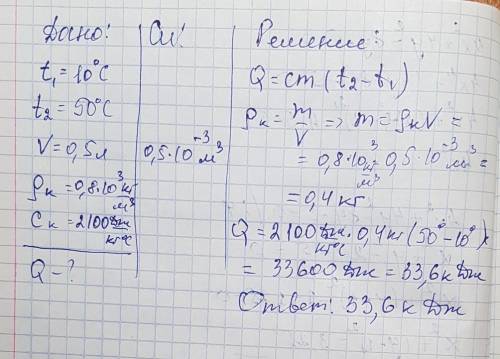 Дано:
t₁ = 10°C
t₂ = 50°C
V = 0,5 л
ρк = 0,8·10³ кг/м³
Cк = 2100 Дж/кг°C
Q - ?
Си:
0,5·10⁻³ м³
Решение:
Q = cm (t₂ - t₁)
ρк = m/V => m = ρкV =
= 0,8·10³ кг/м³ · 0,5·10⁻³ м³ =
= 0,4 кг
Q = 2100 Дж/кг°C · 0,4 кг (50° - 10°)=
= 33600 Дж = 33,6 кДж
Ответ: 33,6 кДж